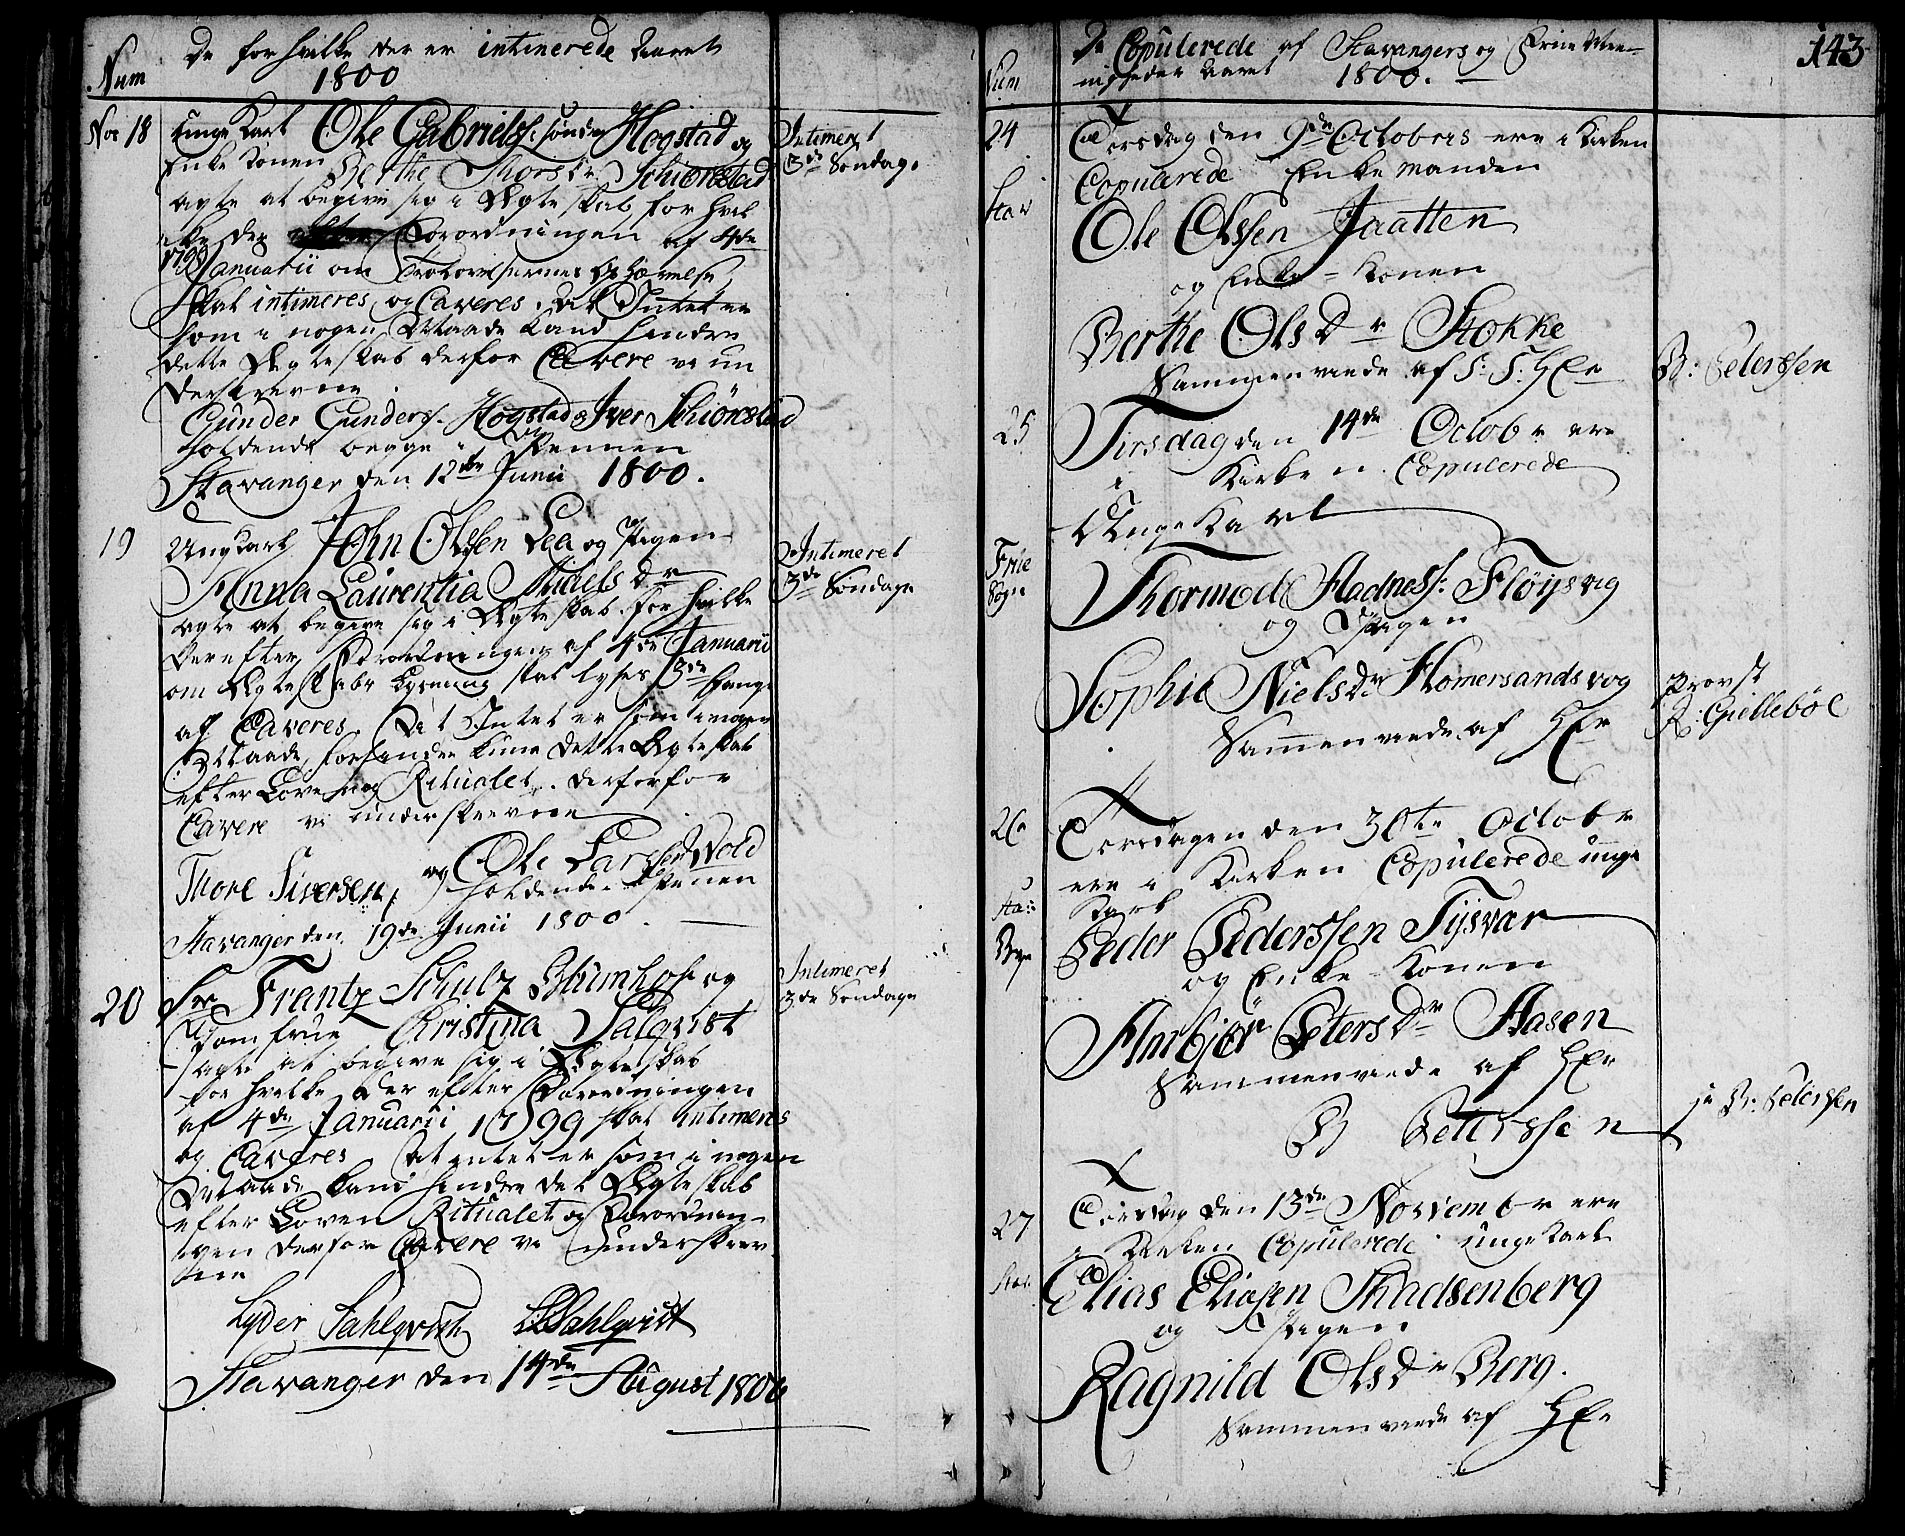 De for hvilke der er intimerede Aaret
Num 1800
No: 18 Unge Karl Ole Gabrielss: sønde Hogstad og
Enke Konen Berthe Thorsdr Schiørestad
agte at begive sig i Ægteskab, for hvil
ke der Forordningen af 4de
1799 Januarii om Trolovelsernes Ophævelse
skal intimeres og Caveres. At Intet er
som i nogen Maade kand hindre
dette Ægteskab derfor Cavere vi un
derskrevne.
Gunder Gunderss. Hogstad og Iver Schiørestad
Holdende begge i Pennen
Stavanger den 12te Junii 1800.
Intimeret
3de Søndage
19 Ungkarl John Olssen Lea og Pigen
Anna Laurentia Michelsdr
agte at begive sig i Ægteskab, for hvilke
der efter Forordningen af 4de Januarii
om Ægteskabs Lysning skal lyses 3de Gange
og Caveres, At Intet er som i nogen
Maade forhindre kunde dette Ægteskab
efter Loven og Ritualet. derforfor
Cavere vi underskrevne
Thore Siversen, og Ole Larssen Wold
holdende i Pennen
Stavanger den 19de Junii 1800.
Intimeret
3de Søndage
20 Sr Frantz Schultz Blumhof og
Jomfrue Kristina Salqvist
agte at begive sig i Ægteskab
for hvilke der efter Forordningen
af 4de Januarii 1799 skal intimeres
og Caveres At intet er som i nogen
Maade kand hindre det Ægteskab
efter Loven Ritualet og Forordnin-
gen derfor Cavere vi underskrev
ne
Lyder Sahlqvist Sahlqvist
Stavanger den 14de August 1800
Intimeret
3de Søndage
143
De Copulerede af Stavangers og Frue Me-
Num nigheder Aaret 1800.
24 Torsdag den 9de Octobris ere i Kirken
Stav Copulerede Enkemanden
Ole Olssen Jaatten
og Enke-Konen
Berthe Olsdr Stokke
Sammenviede af S: T: Hr B: Peterssen
25 Tirsdag den 14de Octobr ere
i Kirken Copulerede
Unge Karl
Frue
Sogn Thormod Aadness: Fløysvig
og Pigen
Sophie Nielsdr Homersandsvog
Sammenviede af Hr
Provst
R: Gjellebøl
26 Torsdagen den 30te Octobr
ere i Kirken Copulerede unge
Sta: Karl
Bye Peder Pederssen Tysvær
og Enke-Konen
Anbjør Petersdr Aasen
Sammenviede af Hr
B Peterssen B: Peterssen
27 Torsdag den 13de Novembr ere
i Kirken Copulerede unge Karl
Stav. Elias Eliasen Stadsenberg
og Pigen
Ragnild Olsdr Berg.
Sammenviede af Hr